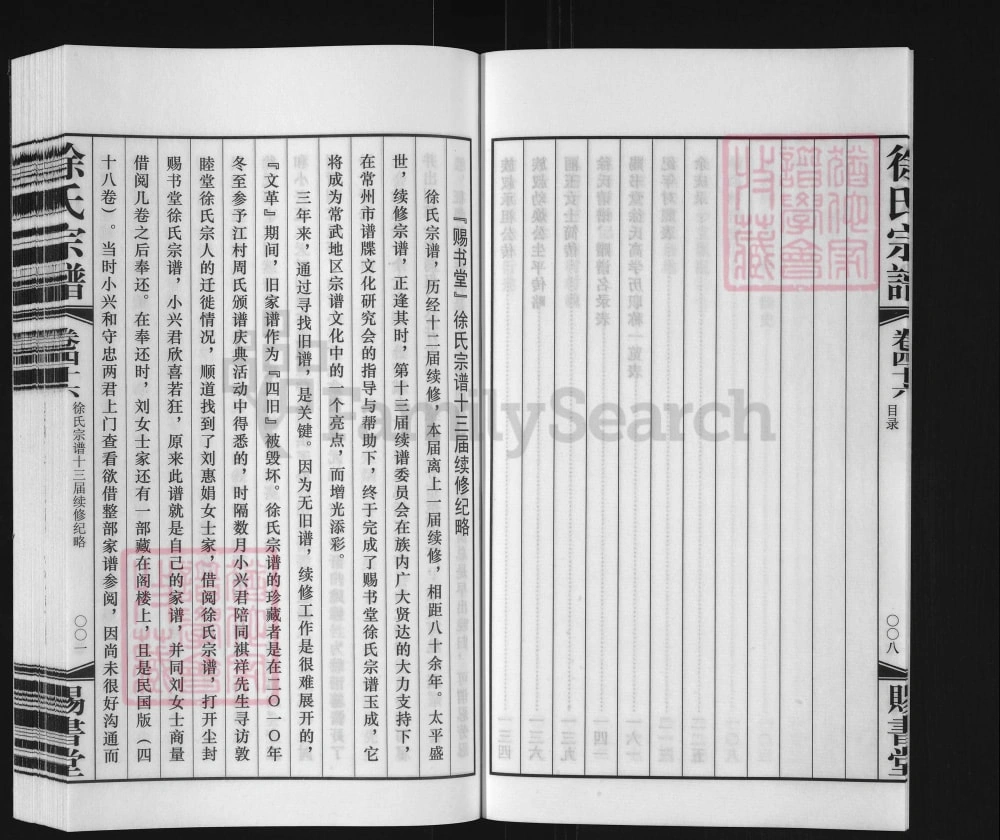 徐氏宗譜
卷四十六
目录
〇〇八
賜書堂
『赐书堂』徐氏宗谱十三届续修纪略
徐氏宗谱，历经十二届续修，本届离上一届续修，相距八十余年。太平盛
世，续修宗谱，正逢其时，第十三届续谱委员会在族内广大贤达的大力支持下，
在常州市谱牒文化研究会的指导与帮助下，终于完成了赐书堂徐氏宗谱玉成，它
将成为常武地区宗谱文化中的一个亮点，而增光添彩。
三年来，通过寻找旧谱，是关键。因为无旧谱，续修工作是很难展开的，
『文革』期间，旧家谱作为『四旧』被毁坏。徐氏宗谱的珍藏者是在二〇一〇年
冬至参予江村周氏颁谱庆典活动中得悉的，时隔数月小兴君陪同祺祥先生寻访敦
睦堂徐氏宗人的迁徙情况，顺道找到了刘惠娟女士家，借阅徐氏宗谱，打开尘封
赐书堂徐氏宗谱，小兴君欣喜若狂，原来此谱就是自己的家谱，并同刘女士商量
借阅几卷之后奉还。在奉还时，刘女士家还有一部藏在阁楼上，且是民国版（四
十八卷）。当时小兴和守忠两君上门查看欲借整部家谱参阅，因尚未很好沟通而
徐氏宗譜
卷四十六
徐氏宗谱十三届续修纪略
〇〇一
賜書堂
FamilySearch